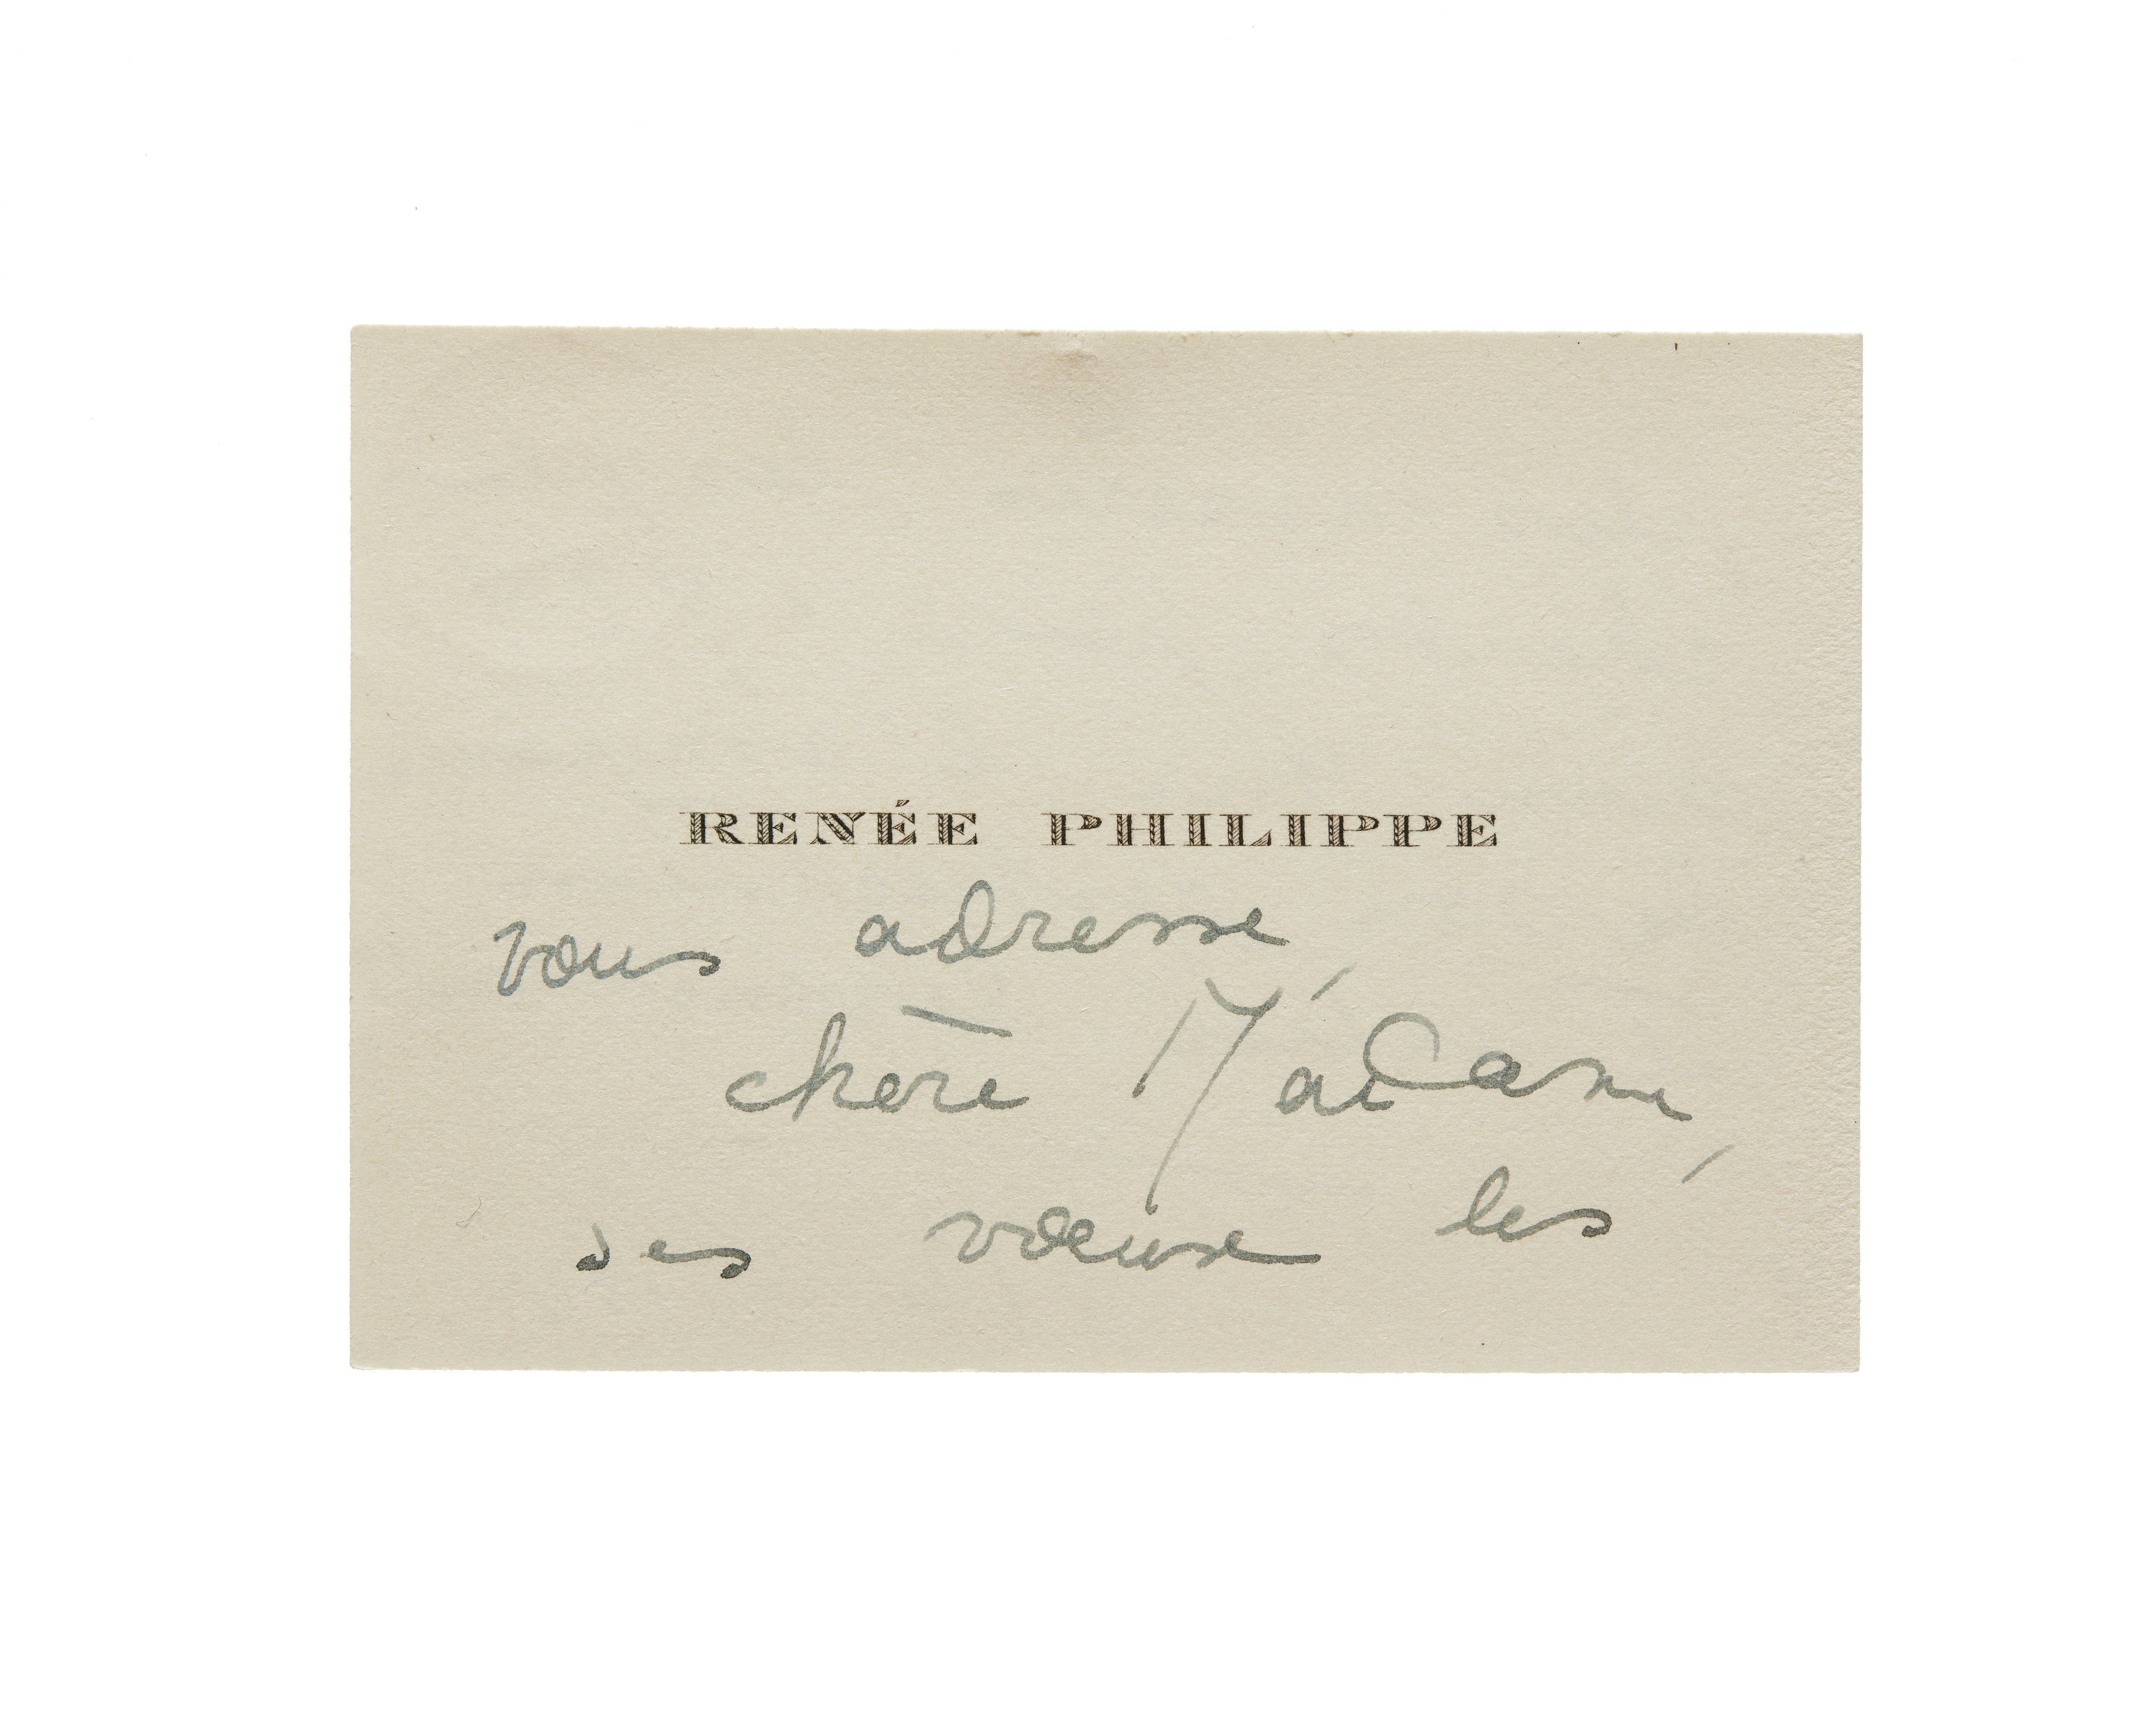 RENÉE PHILIPPE
vous adresse,
chère Madame,
ses vœux les